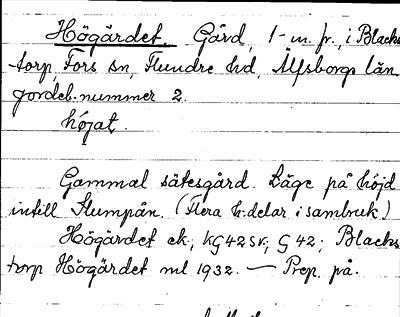 Högärdet. Gård, 1-m. fr., i Blacks
torp, Fors sn, Flundre hd, Älfsborgs län.
jordeb. nummer 2.
hö́jat.
Gammal sätesgård. Läge på höjd
intill Slumpån. (Flera h:delar i sambruk.)
Högärdet ek., KG 42 SV; G 42; Blacks
torp Högärdet ml 1932. — Prep. på.